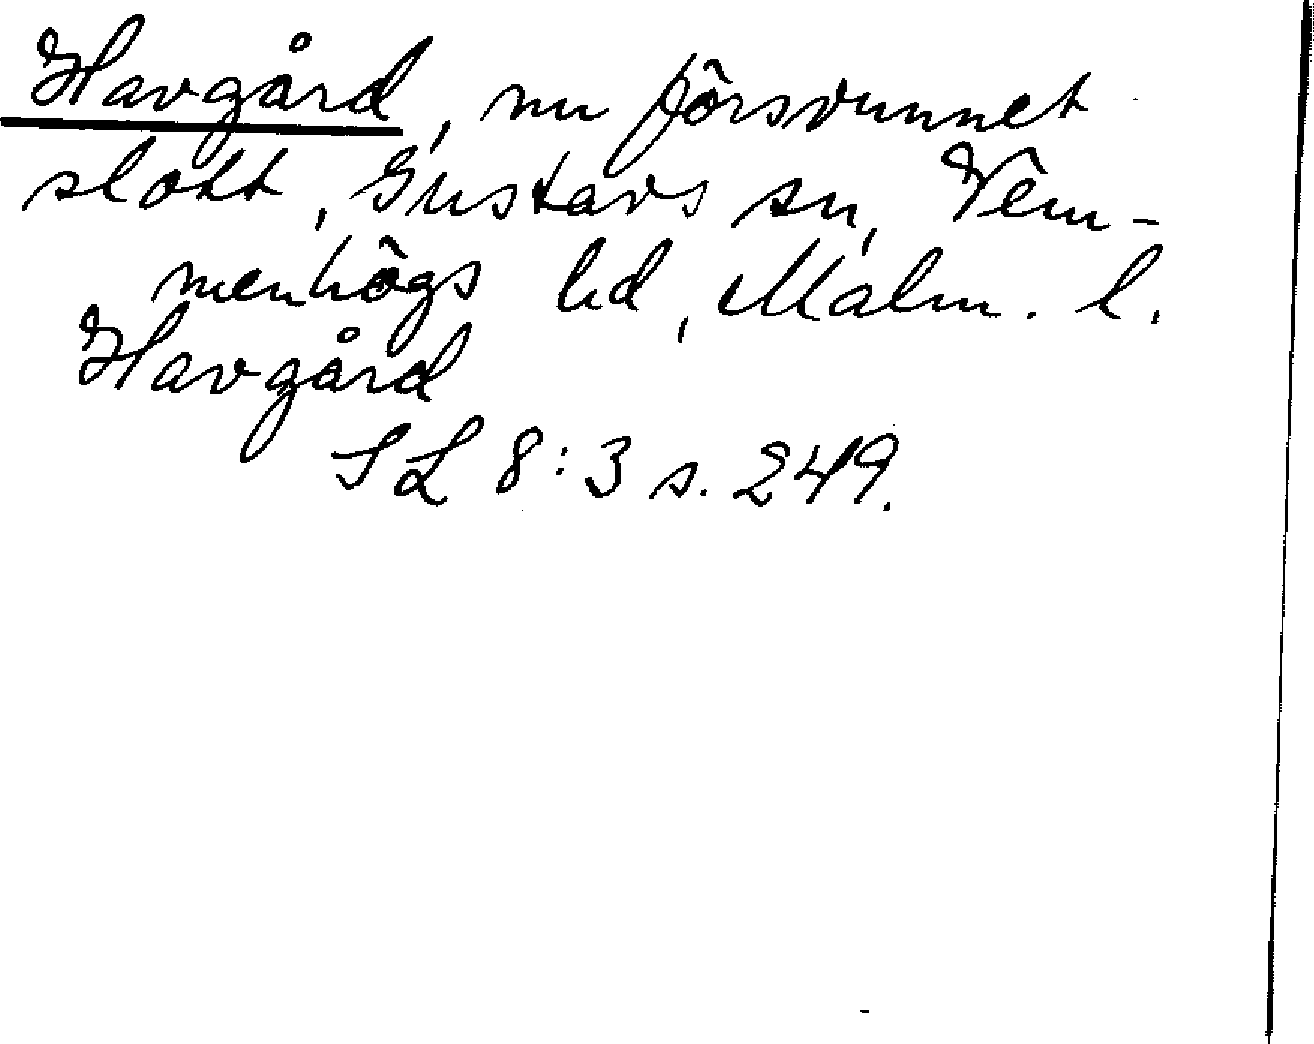 Havgård, nu försvunnet
slott, Gustavs sn, Vem-
menhögs hd, Malm. l.
Havgård
SL 8:3 s. 249.